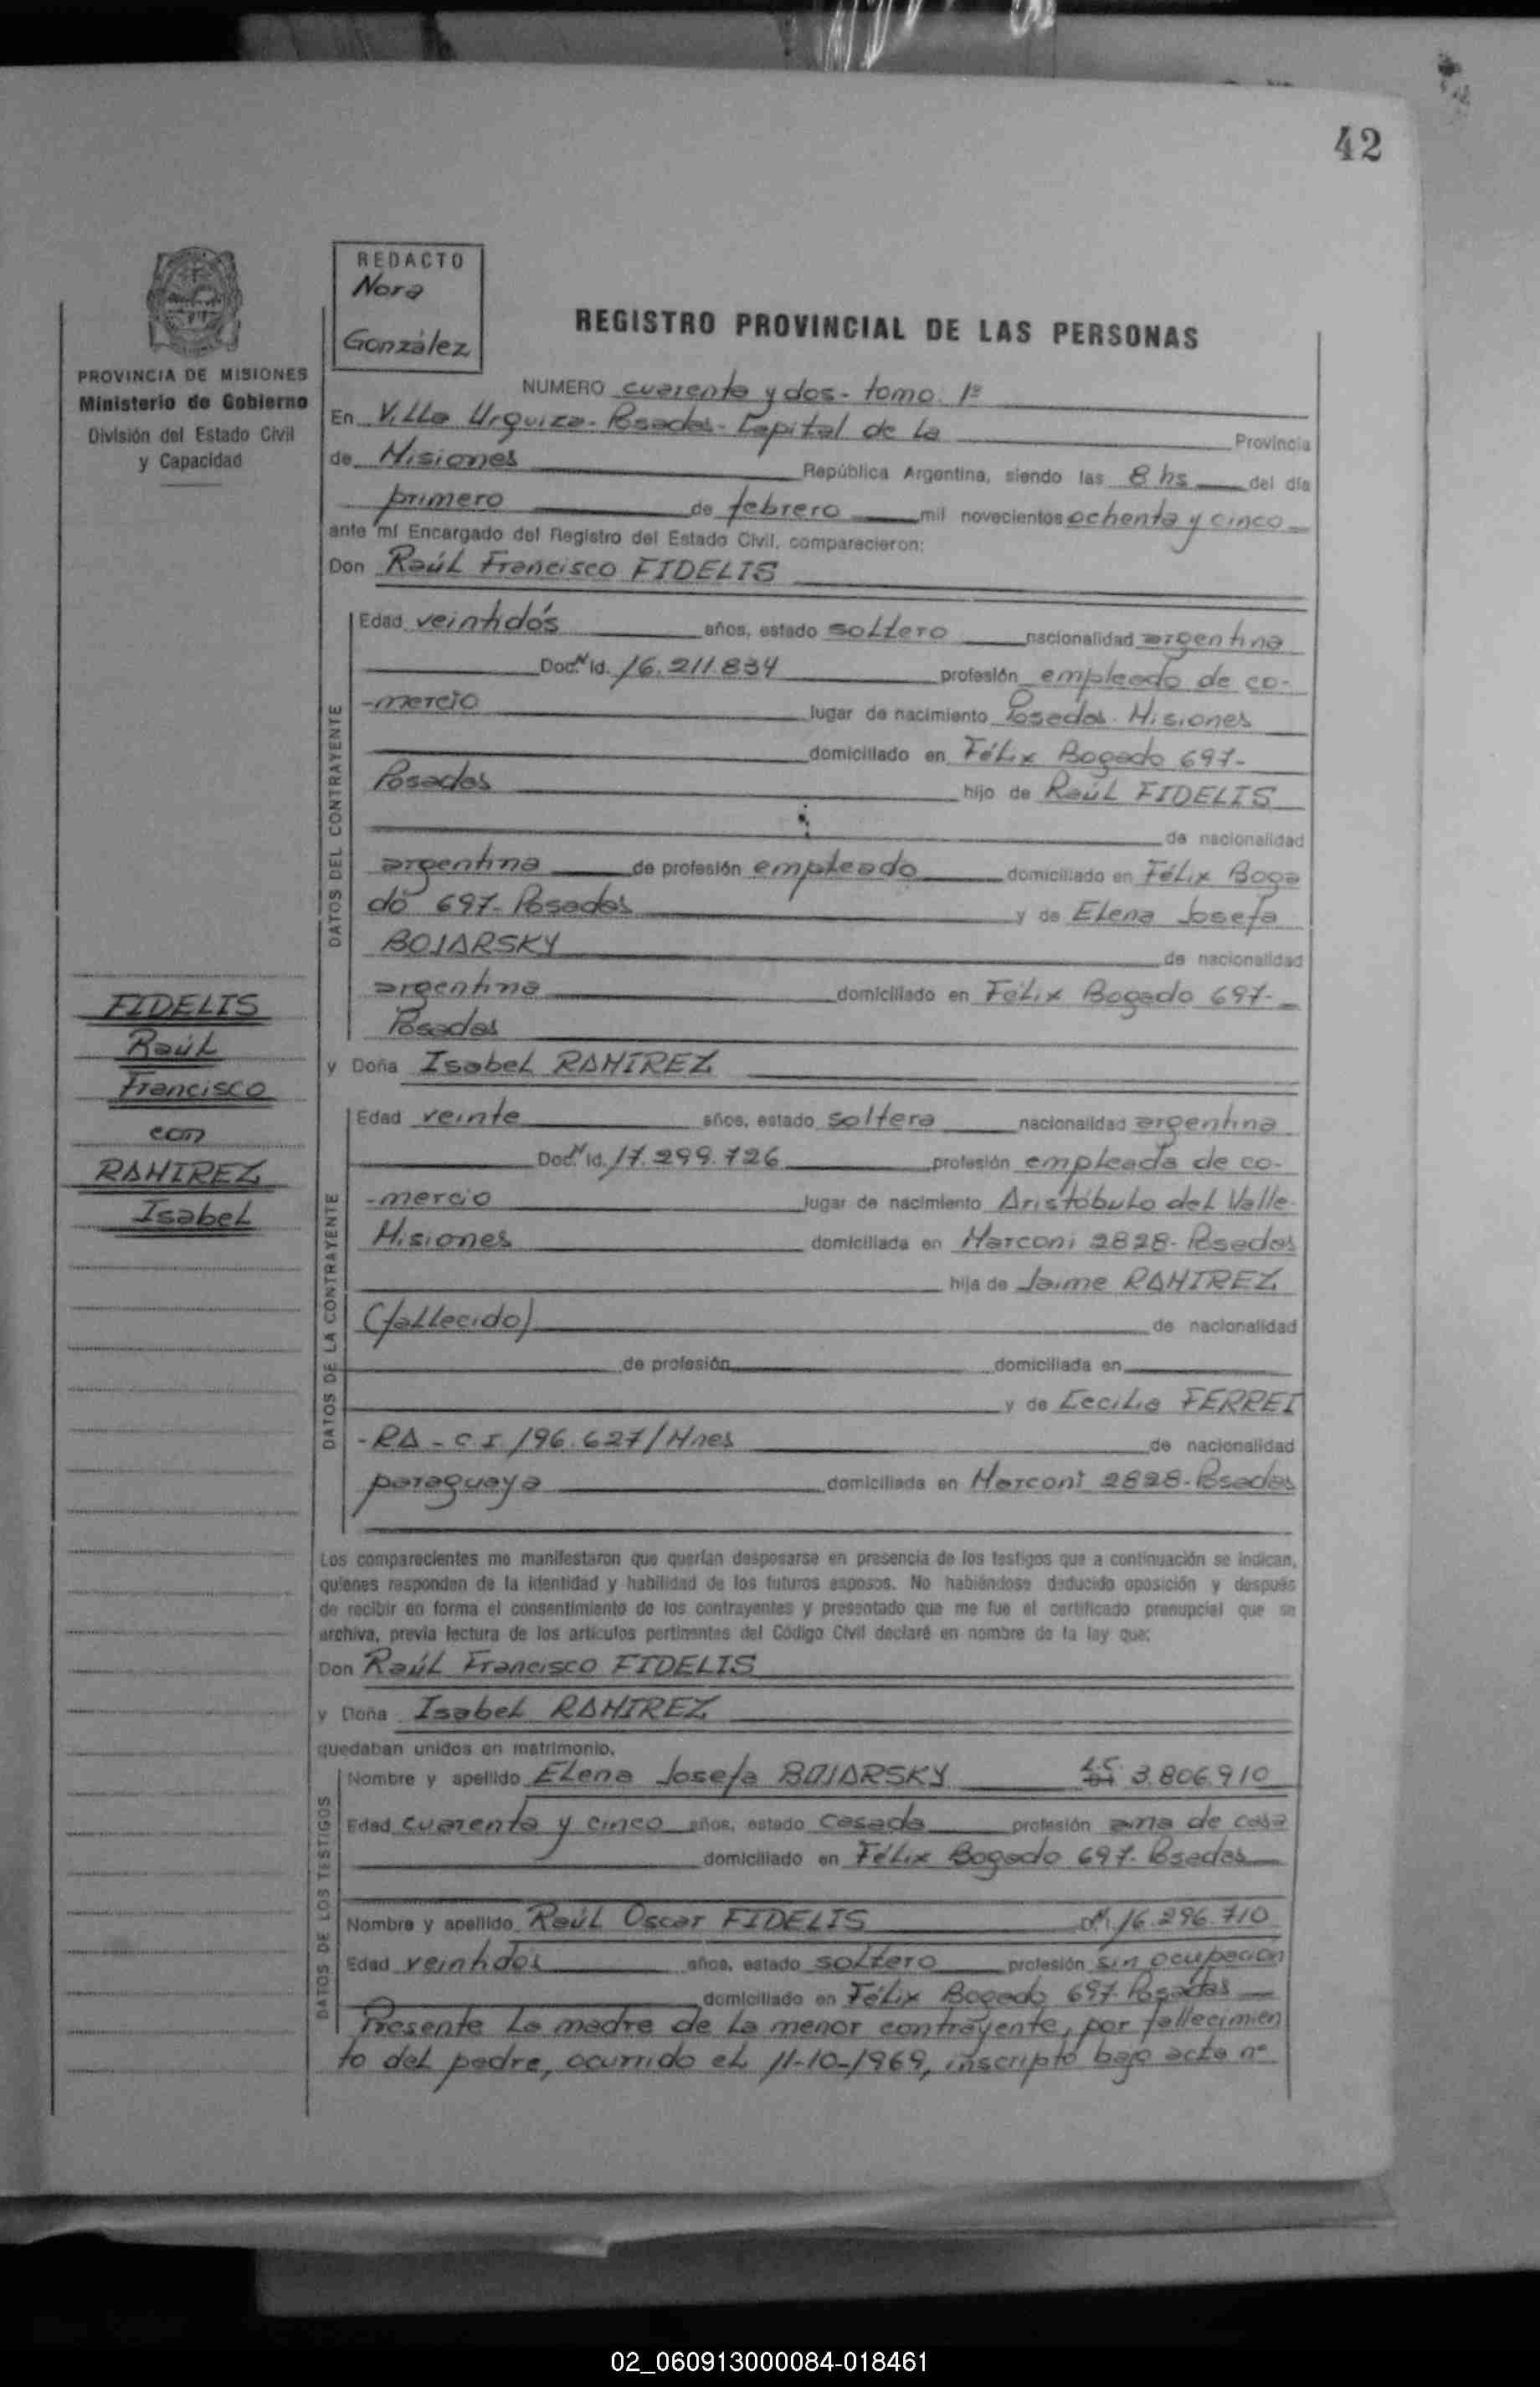 42
REDACTO
Nora
González
REGISTRO PROVINCIAL DE LAS PERSONAS
PROVINCIA DE MISIONES
Ministerio de Gobierno
División del Estado Civil
y Capacidad
NUMERO cuarenta y dos - tomo 1º
En Villa Urquiza - Posadas - Capital de la Provincia
de Misiones República Argentina, siendo las 8 hs del día
primero de febrero mil novecientos ochenta y cinco
ante mí Encargado del Registro del Estado Civil, comparecieron:
Don Raúl Francisco FIDELIS
DATOS DEL CONTRAYENTE
Edad veintidós años, estado soltero nacionalidad argentina
Doc. Id. 16.211.834 profesión empleado de co-
-mercio lugar de nacimiento Posadas - Misiones
domiciliado en Félix Bogado 697-
Posadas hijo de Raúl FIDELIS
de nacionalidad
argentina de profesión empleado domiciliado en Félix Boga
do 697- Posadas y de Elena Josefa
BOJARSKY de nacionalidad
argentina domiciliado en Félix Bogado 697-
Posadas
FIDELIS
Raúl
Francisco
con
RAMIREZ
Isabel
y Doña Isabel RAMIREZ
DATOS DE LA CONTRAYENTE
Edad veinte años, estado soltera nacionalidad argentina
Doc. Id. 17.299.726 profesión empleada de co-
-mercio lugar de nacimiento Aristóbulo del Valle-
Misiones domiciliada en Marconi 2828- Posadas
hija de Jaime RAMIREZ
(fallecido) de nacionalidad
de profesión domiciliada en
y de Cecilia FERREI
-RA - C.I 196.627/Mnes de nacionalidad
paraguaya domiciliada en Marconi 2828- Posadas
Los comparecientes me manifestaron que querían desposarse en presencia de los testigos que a continuación se indican,
quienes responden de la identidad y habilidad de los futuros esposos. No habiéndose deducido oposición y después
de recibir en forma el consentimiento de los contrayentes y presentado que me fue el certificado prenupcial que se
archiva, previa lectura de los artículos pertinentes del Código Civil declaré en nombre de la ley que:
Don Raúl Francisco FIDELIS
y Doña Isabel RAMIREZ
quedaban unidos en matrimonio.
DATOS DE LOS TESTIGOS
Nombre y apellido Elena Josefa BOJARSKY L.C. 3.806.910
Edad cuarenta y cinco años, estado casada profesión ama de casa
domiciliado en Félix Bogado 697- Posadas
Nombre y apellido Raúl Oscar FIDELIS 16.296.710
Edad veintidós años, estado soltero profesión sin ocupación
domiciliado en Félix Bogado 697- Posadas
Presente la madre de la menor contrayente, por fallecimien
to del padre, ocurrido el 11-10-1969, inscripto bajo acta nº
02_060913000084-018461